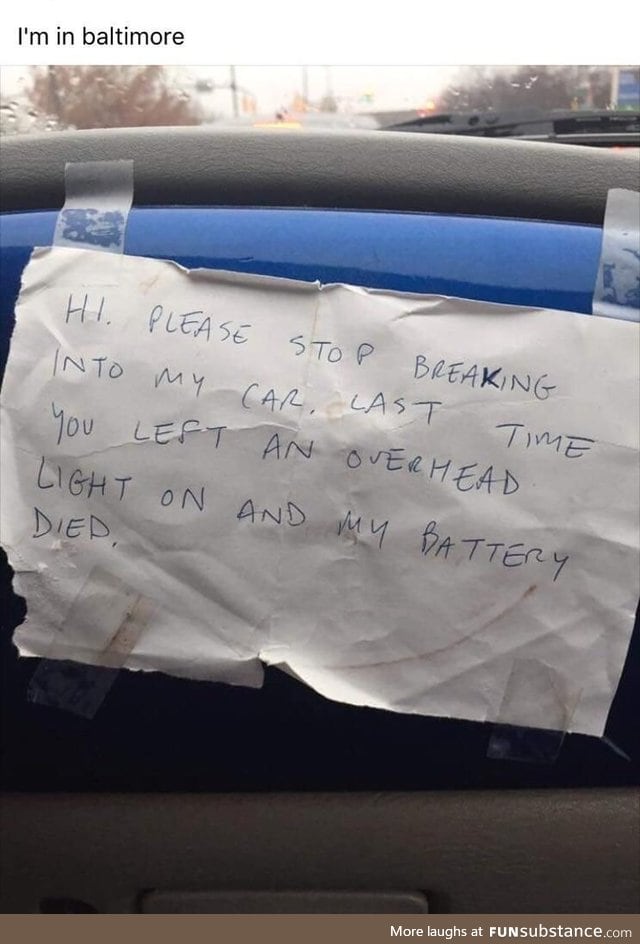 I'm in baltimore
HI. PLEASE STOP BREAKING
INTO MY CAR. LAST TIME
YOU LEFT AN OVERHEAD
LIGHT ON AND MY BATTERY
DIED.
More laughs at FUNsubstance.com